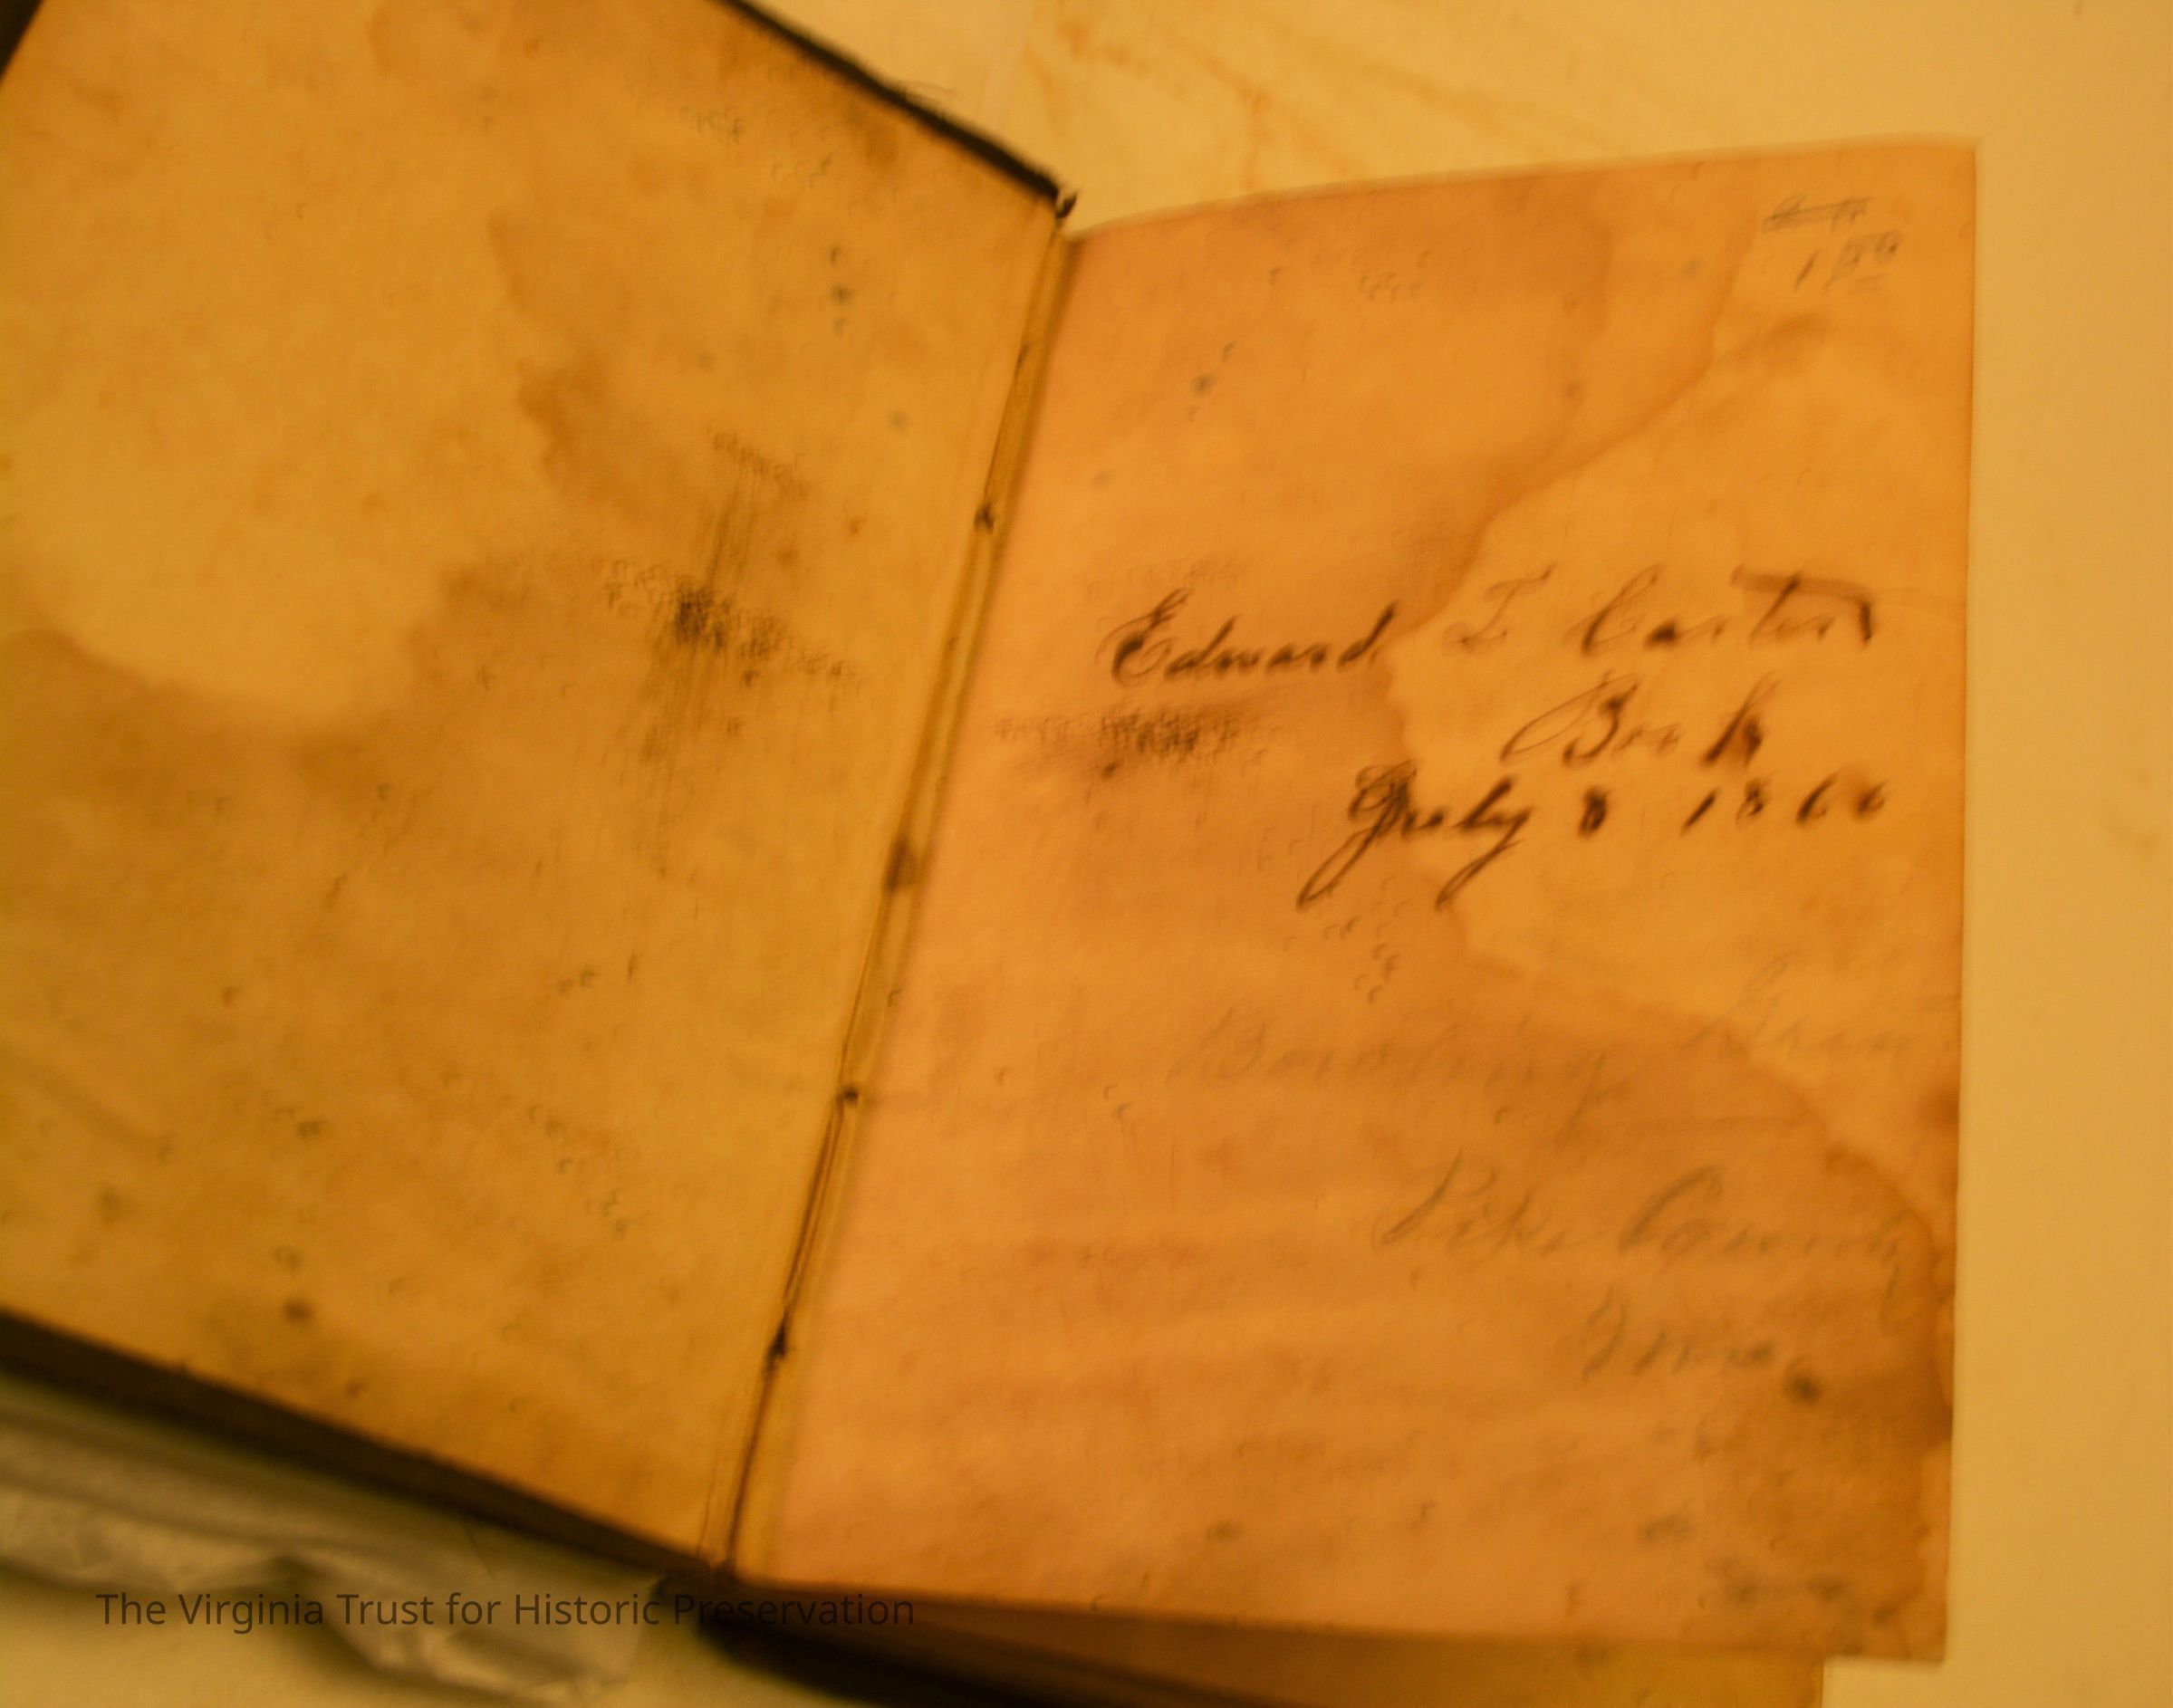 Edward T Carter
Book
July 8 1866
Bowling Green
Pike County
Mo.
The Virginia Trust for Historic Preservation